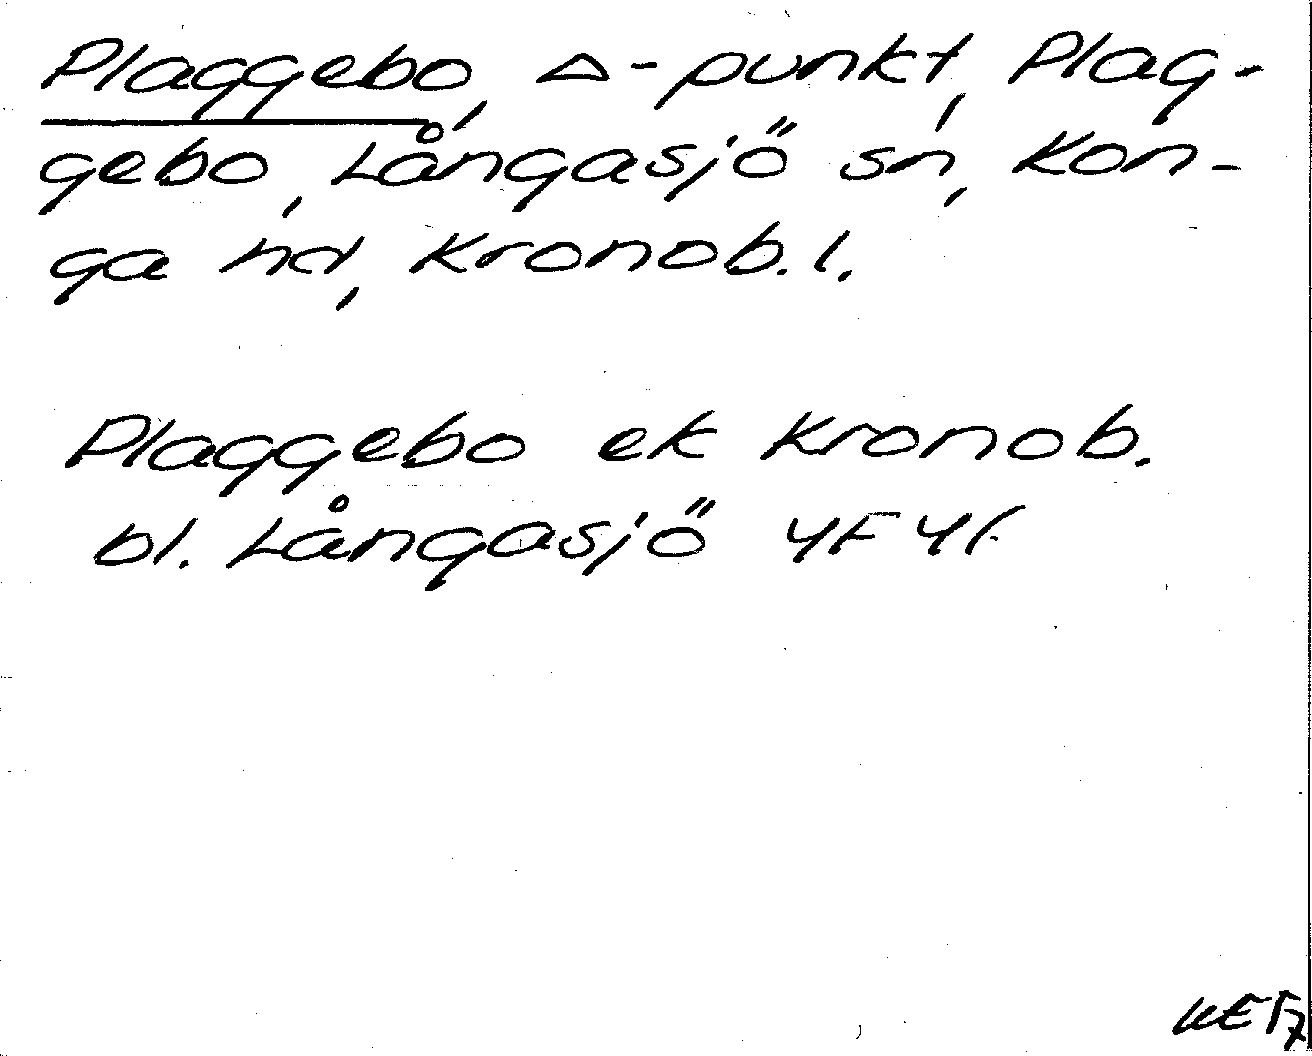 Plaggebo, △-punkt, Plag-
gebo, Långasjö sn, Kon-
ga hd, Kronob. l.
Plaggebo ek Kronob.
bl. Långasjö 4F4f.